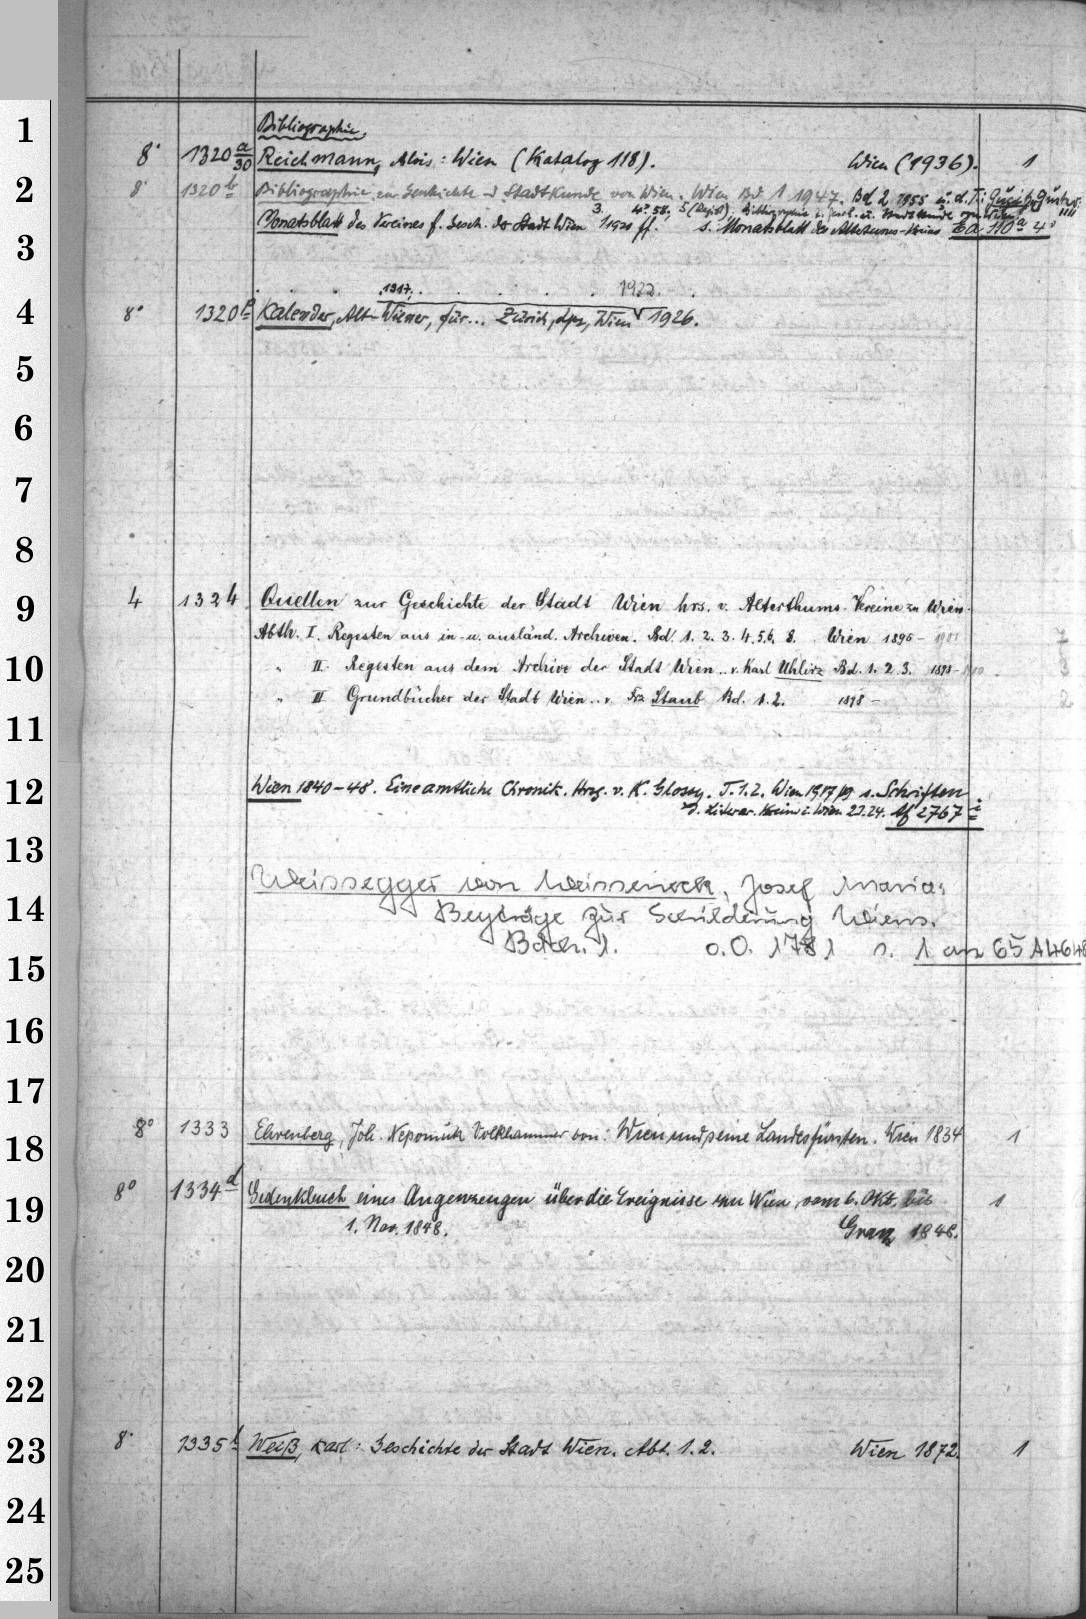 1
Bibliographie,
8° 1320 a/30 Reichmann, Alois: Wien (Katalog 118). Wien (1936). 1
2
8° 1320 b Bibliographie zur Geschichte u. Stadtkunde von Wien. Wien Bd. 1 1947. Bd 2 1955 u. d. T.: Gugitz, Gustav.
3. 4. 58. 5 (Regist) Bibliographie z. Gesch. u. Stadtkunde von Wien. IIII
Monatsblatt des Vereines f. Gesch. der Stadt Wien 1 1920 ff. s. Monatsblatt des Altertums-Vereins Ea 110 a 4°
3
1917. 1922.
4
8° 1320 Kalender, Alt-Wiener, für... Zürich, Lpz, Wien 1926.
5
6
7
8
9
4 1324 Quellen zur Geschichte der Stadt Wien hrs. v. Alterthums-Vereine zu Wien.
Abth. I. Regesten aus in- u. ausländ. Archiven. Bd. 1. 2. 3. 4. 5. 6. 8. Wien 1895 - 7
10
" II. Regesten aus dem Archive der Stadt Wien .. v. Karl Uhlirz Bd. 1. 2. 3. 1898 - 1900. 3
" III Grundbücher der Stadt Wien .. v. Frz Staub Bd. 1. 2. 1898 - 2
11
12
Wien 1840-48. Eine amtliche Chronik. Hrsg. v. K. Glossy. T. 1. 2. Wien 1917/19 s. Schriften
d. Literar. Vereins i. Wien 23. 24. 2767 i
13
Weissegger von Weisseneck, Josef Maria:
14
Beyträge zur Schilderung Wiens.
Bdch. 1. o. O. 1781 s. 1 an 65 A 4648
15
16
17
18
8° 1333 Ehrenberg, Joh. Nepomuk Volkhammer von: Wien und seine Landesfürsten. Wien 1834 1
19
8° 1334 d Gedenkbuch eines Augenzeugen über die Ereignisse in Wien vom 6. Okt. bis 1
1. Nov. 1848. Graz 1848.
20
21
22
23
8° 1335 Weiß, Karl: Geschichte der Stadt Wien. Abt. 1. 2. Wien 1872. 1
24
25